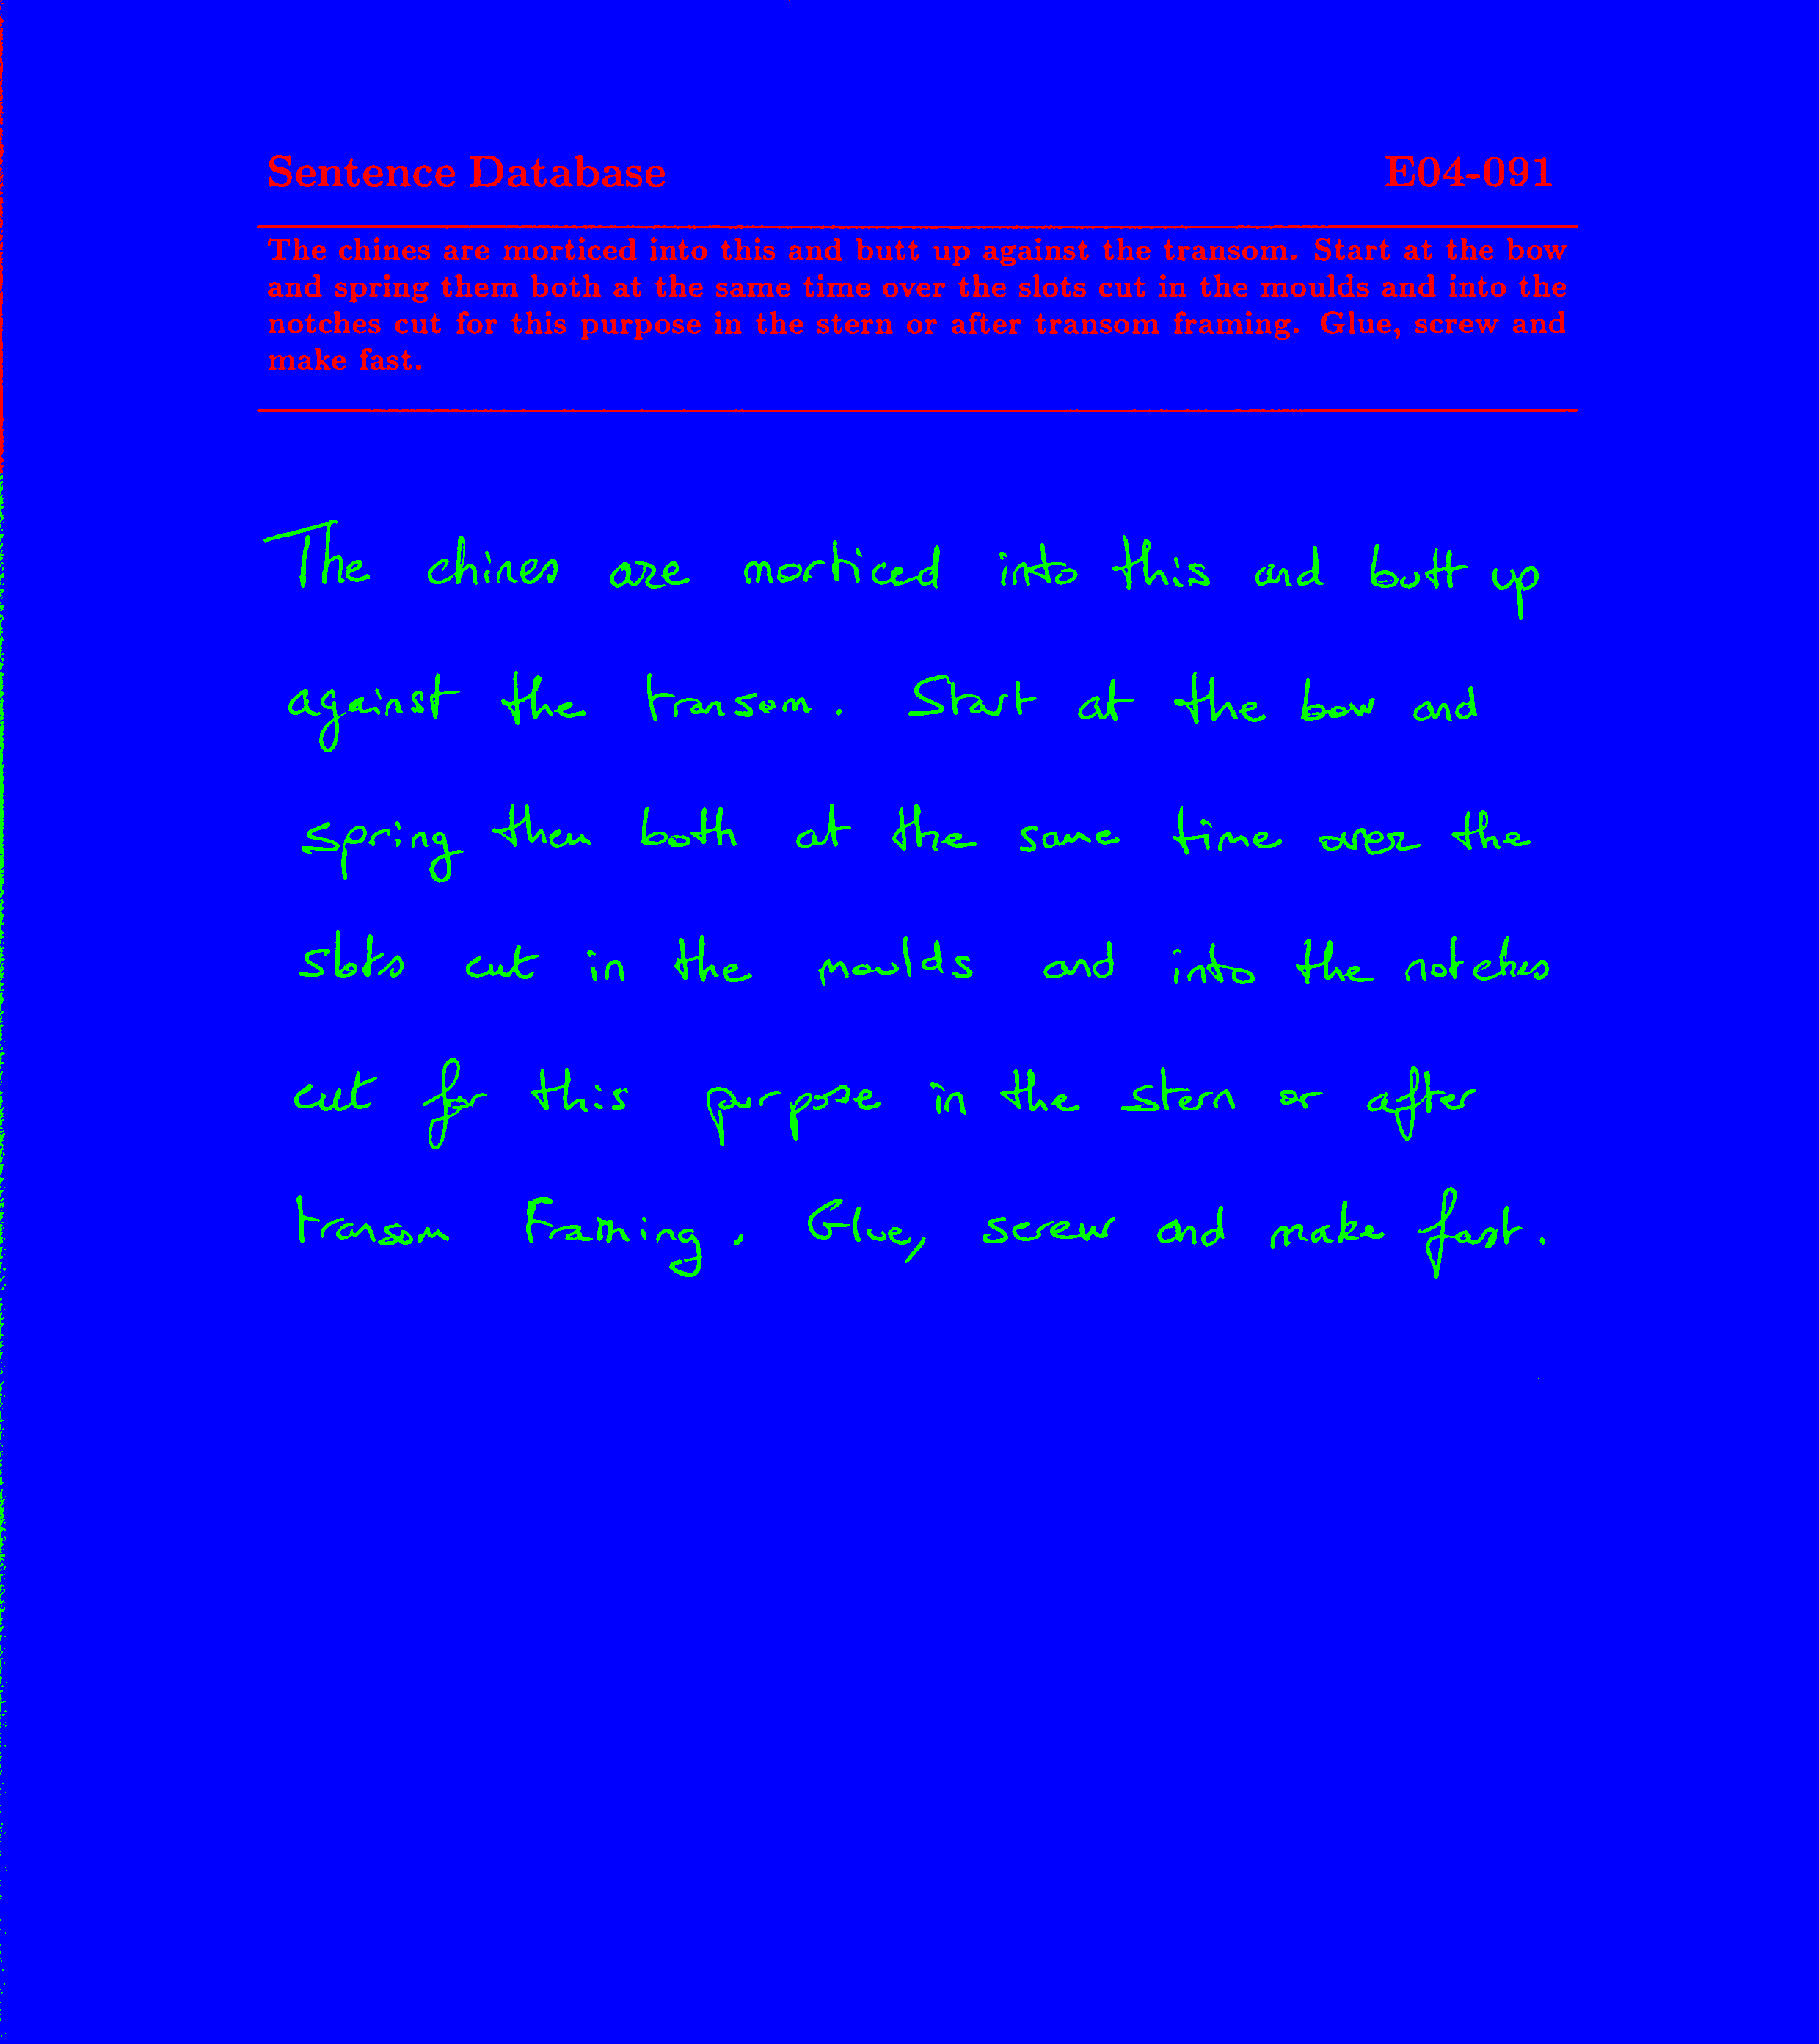 Sentence Database E04-091
The chines are morticed into this and butt up against the transom. Start at the bow
and spring them both at the same time over the slots cut in the moulds and into the
notches cut for this purpose in the stern or after transom framing. Glue, screw and
make fast.
The chines are morticed into this and butt up
against the transom. Start at the bow and
spring them both at the same time over the
slots cut in the moulds and into the notches
cut for this purpose in the stern or after
transom Framing. Glue, screw and make fast.